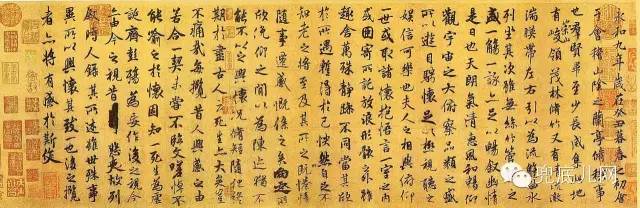 永和九年歲在癸丑暮春之初會
于會稽山陰之蘭亭脩禊事
也群賢畢至少長咸集此地
有崇山峻領茂林脩竹又有清流激
湍暎帶左右引以為流觴曲水
列坐其次雖無絲竹管弦之
盛一觴一詠亦足以暢敘幽情
是日也天朗氣清惠風和暢仰
觀宇宙之大俯察品類之盛
所以遊目騁懷足以極視聽之
娛信可樂也夫人之相與俯仰
一世或取諸懷抱悟言一室之內
或因寄所託放浪形骸之外雖
趣舍萬殊靜躁不同當其欣
於所遇蹔得於己怏然自足不
知老之將至及其所之既惓情
隨事遷感慨係之矣向之所
欣俛仰之間以為陳迹猶不
能不以之興懷況脩短隨化終
期於盡古人云死生亦大矣豈
不痛哉每攬昔人興感之由
若合一契未嘗不臨文嗟悼不
能喻之於懷固知一死生為虛
誕齊彭殤為妄作後之視今
亦由今之視昔悲夫故列
敘時人錄其所述雖世殊事
異所以興懷其致一也後之攬
者亦將有感於斯文
兜底儿网